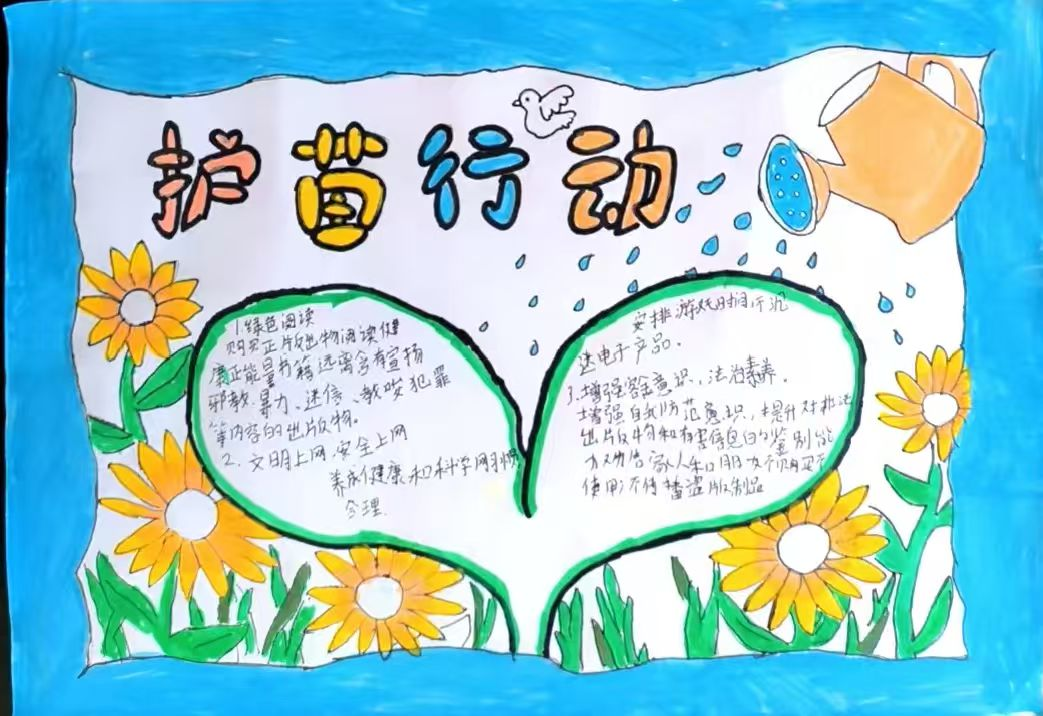 护苗行动
1.绿色阅读
购买正版出物阅读健
康正能量书籍远离含有宣扬
邪教、暴力、迷信、教唆犯罪
等内容的出版物。
2.文明上网、安全上网
养成健康和科学网习惯
合理
安排游戏时间不沉
迷电子产品。
3.增强 意识、法治素养。
增强自我防范意识,提升对非法
出版物和有害信息的鉴别能
力劝告家人和朋友不购买不
使用不传播盗版制品